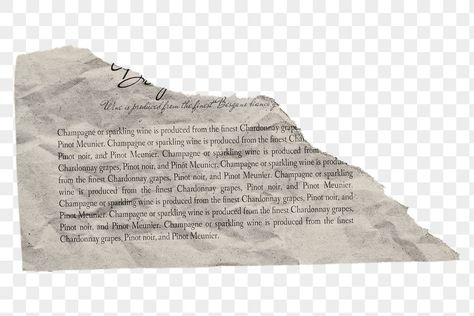 Wine is produced from the finest
Champagne or sparkling wine is produced from the finest Chardonnay grapes,
Pinot Meunier. Champagne or sparkling wine is produced from the finest
Pinot noir, and Pinot Meunier. Champagne or sparkling wine is produced
from the finest Chardonnay grapes, Pinot noir, and Pinot Meunier.
Chardonnay grapes, Pinot noir, and Pinot Meunier. Champagne or sparkling
wine is produced from the finest Chardonnay grapes, Pinot noir, and Pinot Meunier.
Champagne or sparkling wine is produced from the finest Chardonnay grapes,
Pinot noir, and Pinot Meunier. Champagne or sparkling wine is produced
from the finest Chardonnay grapes, Pinot noir, and Pinot Meunier.